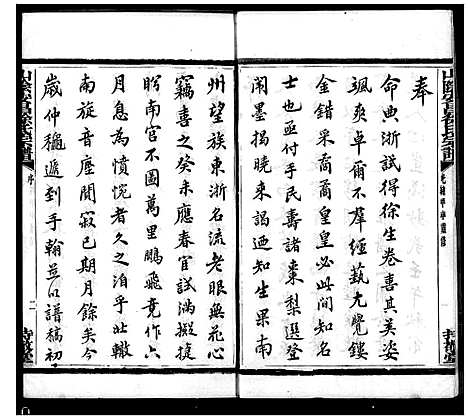 奉
命典浙試得徐生卷喜其英姿
颯爽卓爾不羣經藝尤覺鏤
金錯采裔裔皇皇必知名
士也亟付手民諸東梨選登
闱墨榜後謁知生果南
州望族東浙名流老眼無花心
竊喜之癸未應春官試滿擬捷
盼南宫不圖萬里鵬飛竟作六
月息為憤惋者久之洎乎北轍
南旋音塵闃寂已期月餘矣今
歲仲穐遞到手翰並以譜稿初
山陰安昌徐氏宗譜
序
二